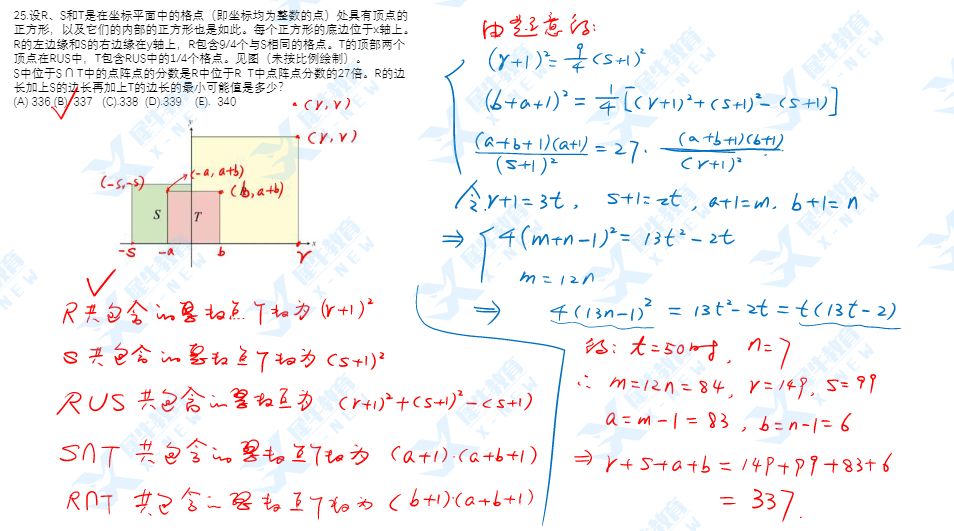 25.设R、S和T是在坐标平面中的格点（即坐标均为整数的点）处具有顶点的
正方形，以及它们的内部的正方形也是如此。每个正方形的底边位于x轴上。
R的左边缘和S的右边缘在y轴上，R包含9/4个与S相同的格点。T的顶部两个
顶点在RUS中，T包含RUS中的1/4个格点。见图（未按比例绘制）。
S中位于S∩T中的点阵点的分数是R中位于R T中点阵点分数的27倍。R的边
长加上S的边长再加上T的边长的最小可能值是多少?
(A) 336 (B) 337 (C).338 (D).339 (E). 340
(r, r)
y
(r, r)
(-s, -s)
(-a, a+b)
(b, a+b)
S
T
x
-s
-a
b
r
R共包含的整数点个数为(r+1)²
S共包含的整数点个数为(s+1)²
RUS共包含的整数点为 (r+1)²+(s+1)²-(s+1)
S∩T 共包含的整数点个数为 (a+1)·(a+b+1)
R∩T 共包含的整数点个数为 (b+1)·(a+b+1)
由题意得:
(r+1)²= 9/4 (s+1)²
(b+a+1)² = 1/4 [(r+1)²+(s+1)²-(s+1)]
(a+b+1)(a+1)/(s+1)² = 27· (a+b+1)(b+1)/(r+1)²
令 r+1=3t, s+1=2t, a+1=m, b+1=n
⇒ 4(m+n-1)²= 13t²-2t
m=12n
⇒ 4(13n-1)² = 13t²-2t = t(13t-2)
得: t=50时, n=7
∴ m=12n=84, r=149, s=99
a=m-1=83, b=n-1=6
⇒ r+s+a+b=149+99+83+6
= 337.
犀牛教育
X-NEW